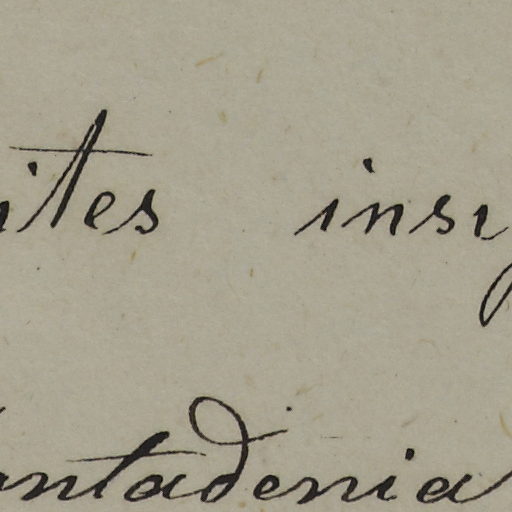 ites insi
antadenia